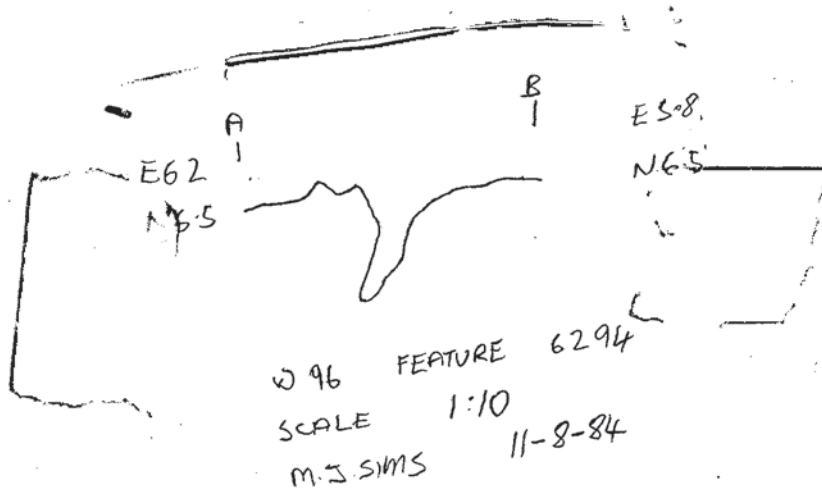 A
B
E62
N6.5
E5.8.
N.6.5
W 96 FEATURE 6294
SCALE 1:10
M.J.SIMS 11-8-84